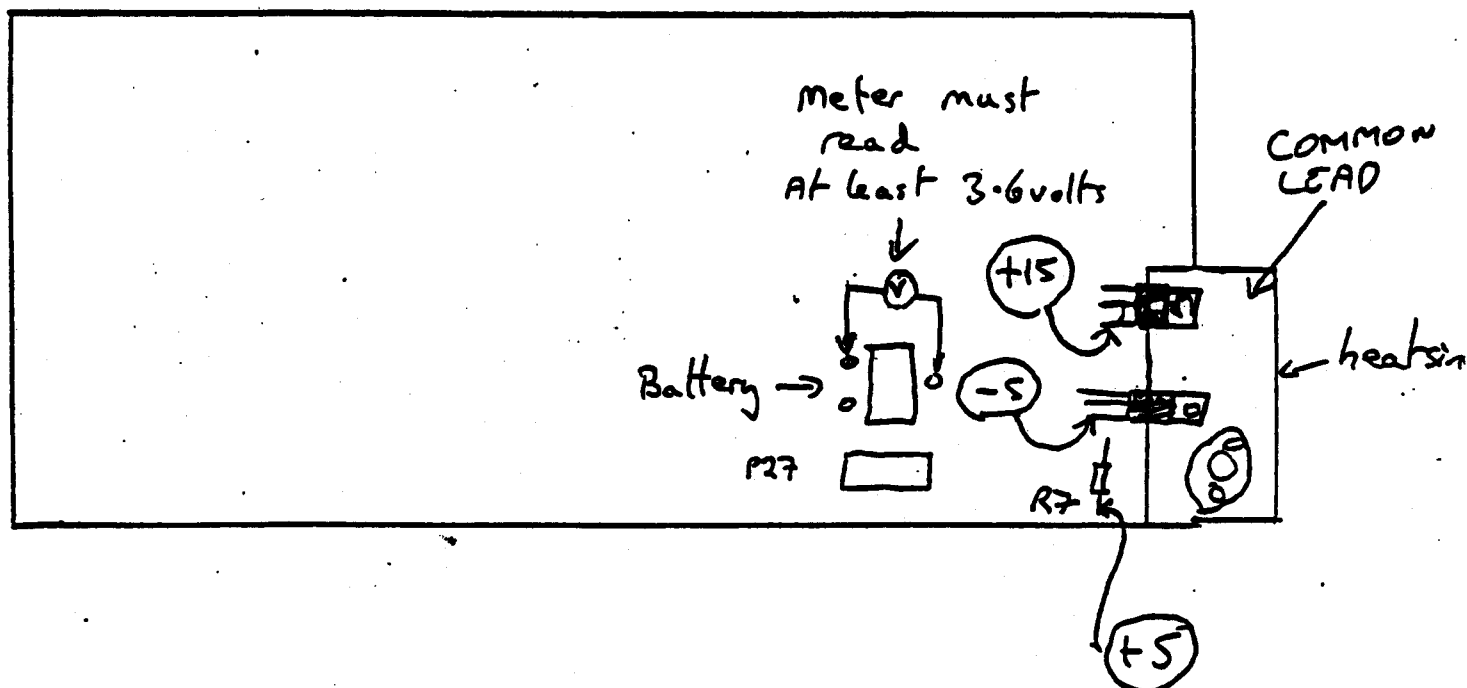 Meter must
read
At least 3.6volts
V
COMMON
LEAD
+15
heatsin
Battery
-5
P27
R7
+5